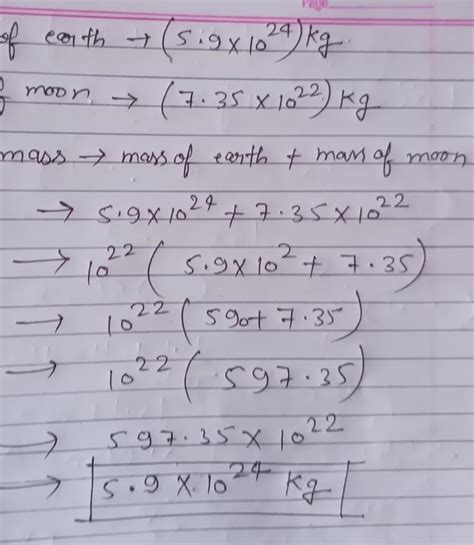 Page
of earth → (5.9×10²⁴) kg.
moon → (7.35 ×10²²) kg
mass → mass of earth + mass of moon
→ 5.9×10²⁴ + 7.35×10²²
→ 10²² ( 5.9×10² + 7.35)
→ 10²² ( 590+ 7.35)
→ 10²² ( 597.35)
→ 597.35 × 10²²
→ 5.9 × 10²⁴ kg